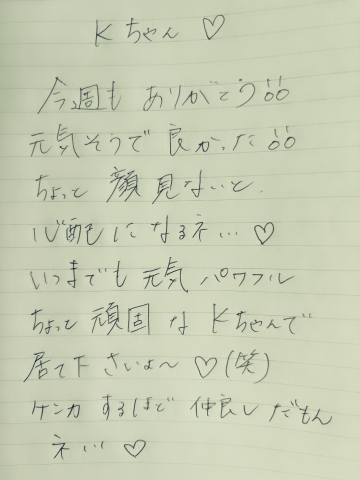 Kちゃん ♡
今週もありがとう!!
元気そうで良かった!!
ちょっと顔見ないと、
心配になるネ…♡
いつまでも元気パワフル
ちょっと頑固なKちゃんで
居て下さいよ〜♡(笑)
ケンカするほど仲良しだもん
ネ…♡